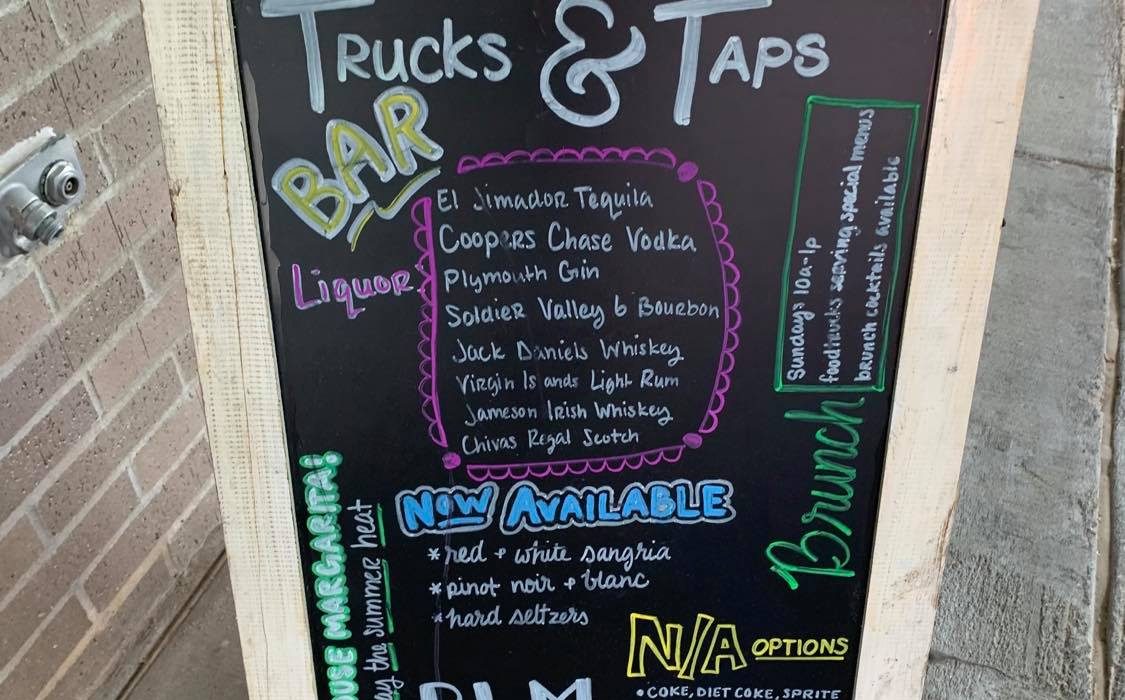 TRUCKS & TAPS
BAR
Liquor
El Jimador Tequila
Coopers Chase Vodka
Plymouth Gin
Soldier Valley 6 Bourbon
Jack Daniels Whiskey
Virgin Islands Light Rum
Jameson Irish Whiskey
Chivas Regal Scotch
NOW AVAILABLE
*red + white sangria
*pinot noir + blanc
*hard seltzers
N/A OPTIONS
•COKE, DIET COKE, SPRITE
Brunch
Sundays 10a-1p
foodtrucks serving special menus
brunch cocktails available
MARGARITA!
the summer heat